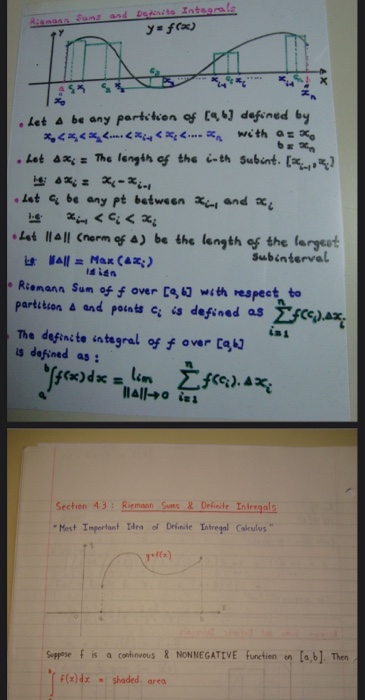 Riemann Sums and Definite Integrals
y
y = f(x)
x
• Let Δ be any partition of [a,b] defined by
x₀ < x₁ < x₂ < .... < xᵢ₋₁ < xᵢ < .... xₙ with a = x₀
b = xₙ
• Let Δxᵢ = The length of the i-th subint. [xᵢ₋₁, xᵢ]
ie: Δxᵢ = xᵢ - xᵢ₋₁
• Let cᵢ be any pt between xᵢ₋₁ and xᵢ
i.e. xᵢ₋₁ < cᵢ < xᵢ
• Let ||Δ|| (norm of Δ) be the length of the largest
subinterval
ie ||Δ|| = Max (Δxᵢ)
1≤i≤n
• Riemann Sum of f over [a,b] with respect to
partition Δ and points cᵢ is defined as Σⁿᵢ₌₁ f(cᵢ).Δxᵢ
• The definite integral of f over [a,b]
is defined as:
ₐ∫ᵇ f(x)dx = lim ||Δ||→0 Σⁿᵢ₌₁ f(cᵢ). Δxᵢ
Section 4.3 : Riemann Sums & Definite Integrals
"Most Important Idea of Definite Integral Calculus"
y=f(x)
Suppose f is a continuous & NONNEGATIVE function on [a,b]. Then
ₐ∫ᵇ f(x)dx = shaded area